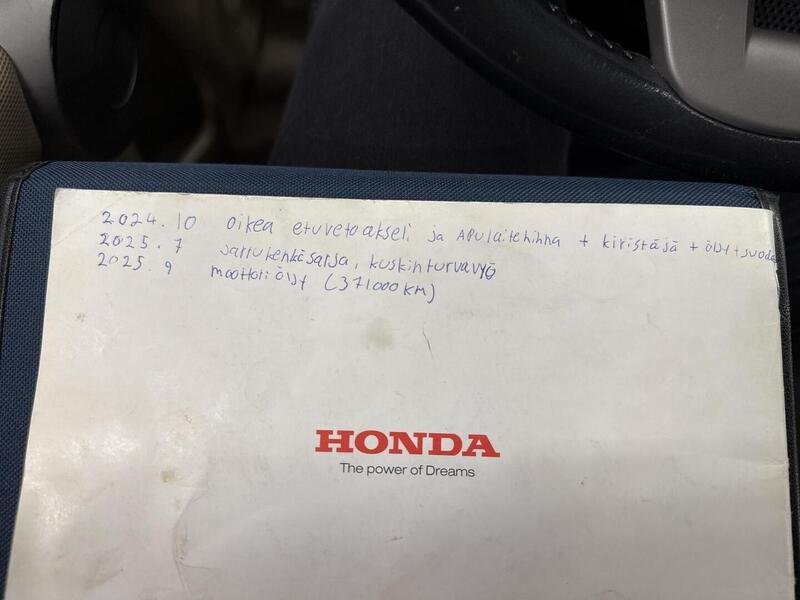 2024.10 oikea etuvetoakseli ja APulaitehihna + kiristäjä + öljyt + suoda
2025.7 jarrukenkäsarja, kuskin turvavyö
2025.9 moottoriöljyt (371.000 KM)
HONDA
The power of Dreams